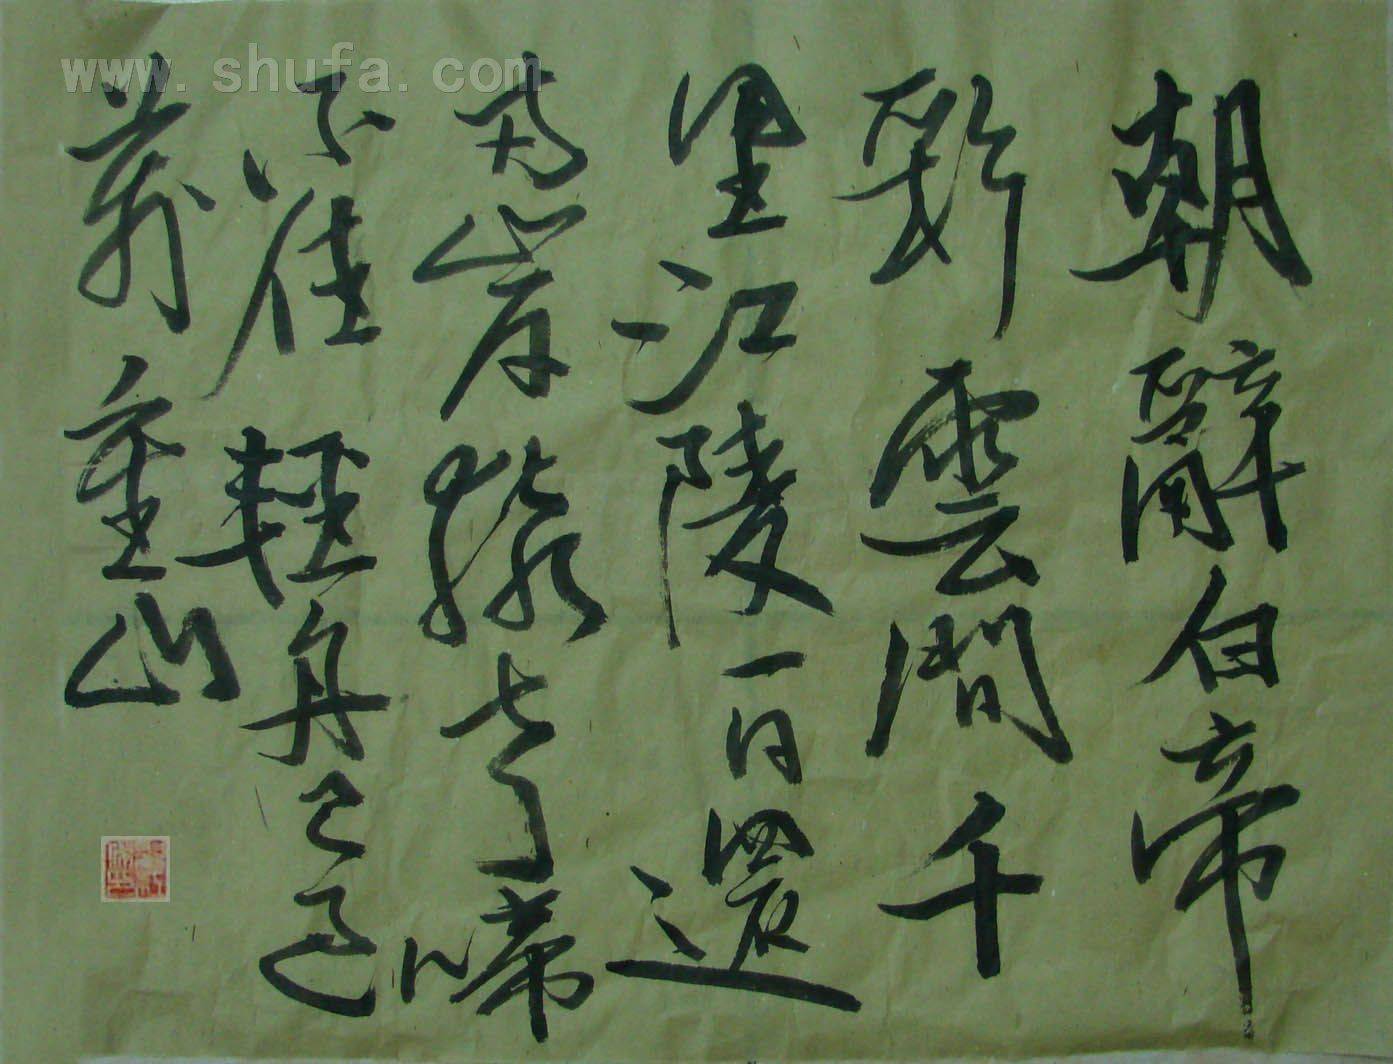 www.shufa.com
朝辭白帝
彩雲間千
里江陵一日還
兩岸猿聲啼
不住輕舟已過
萬重山